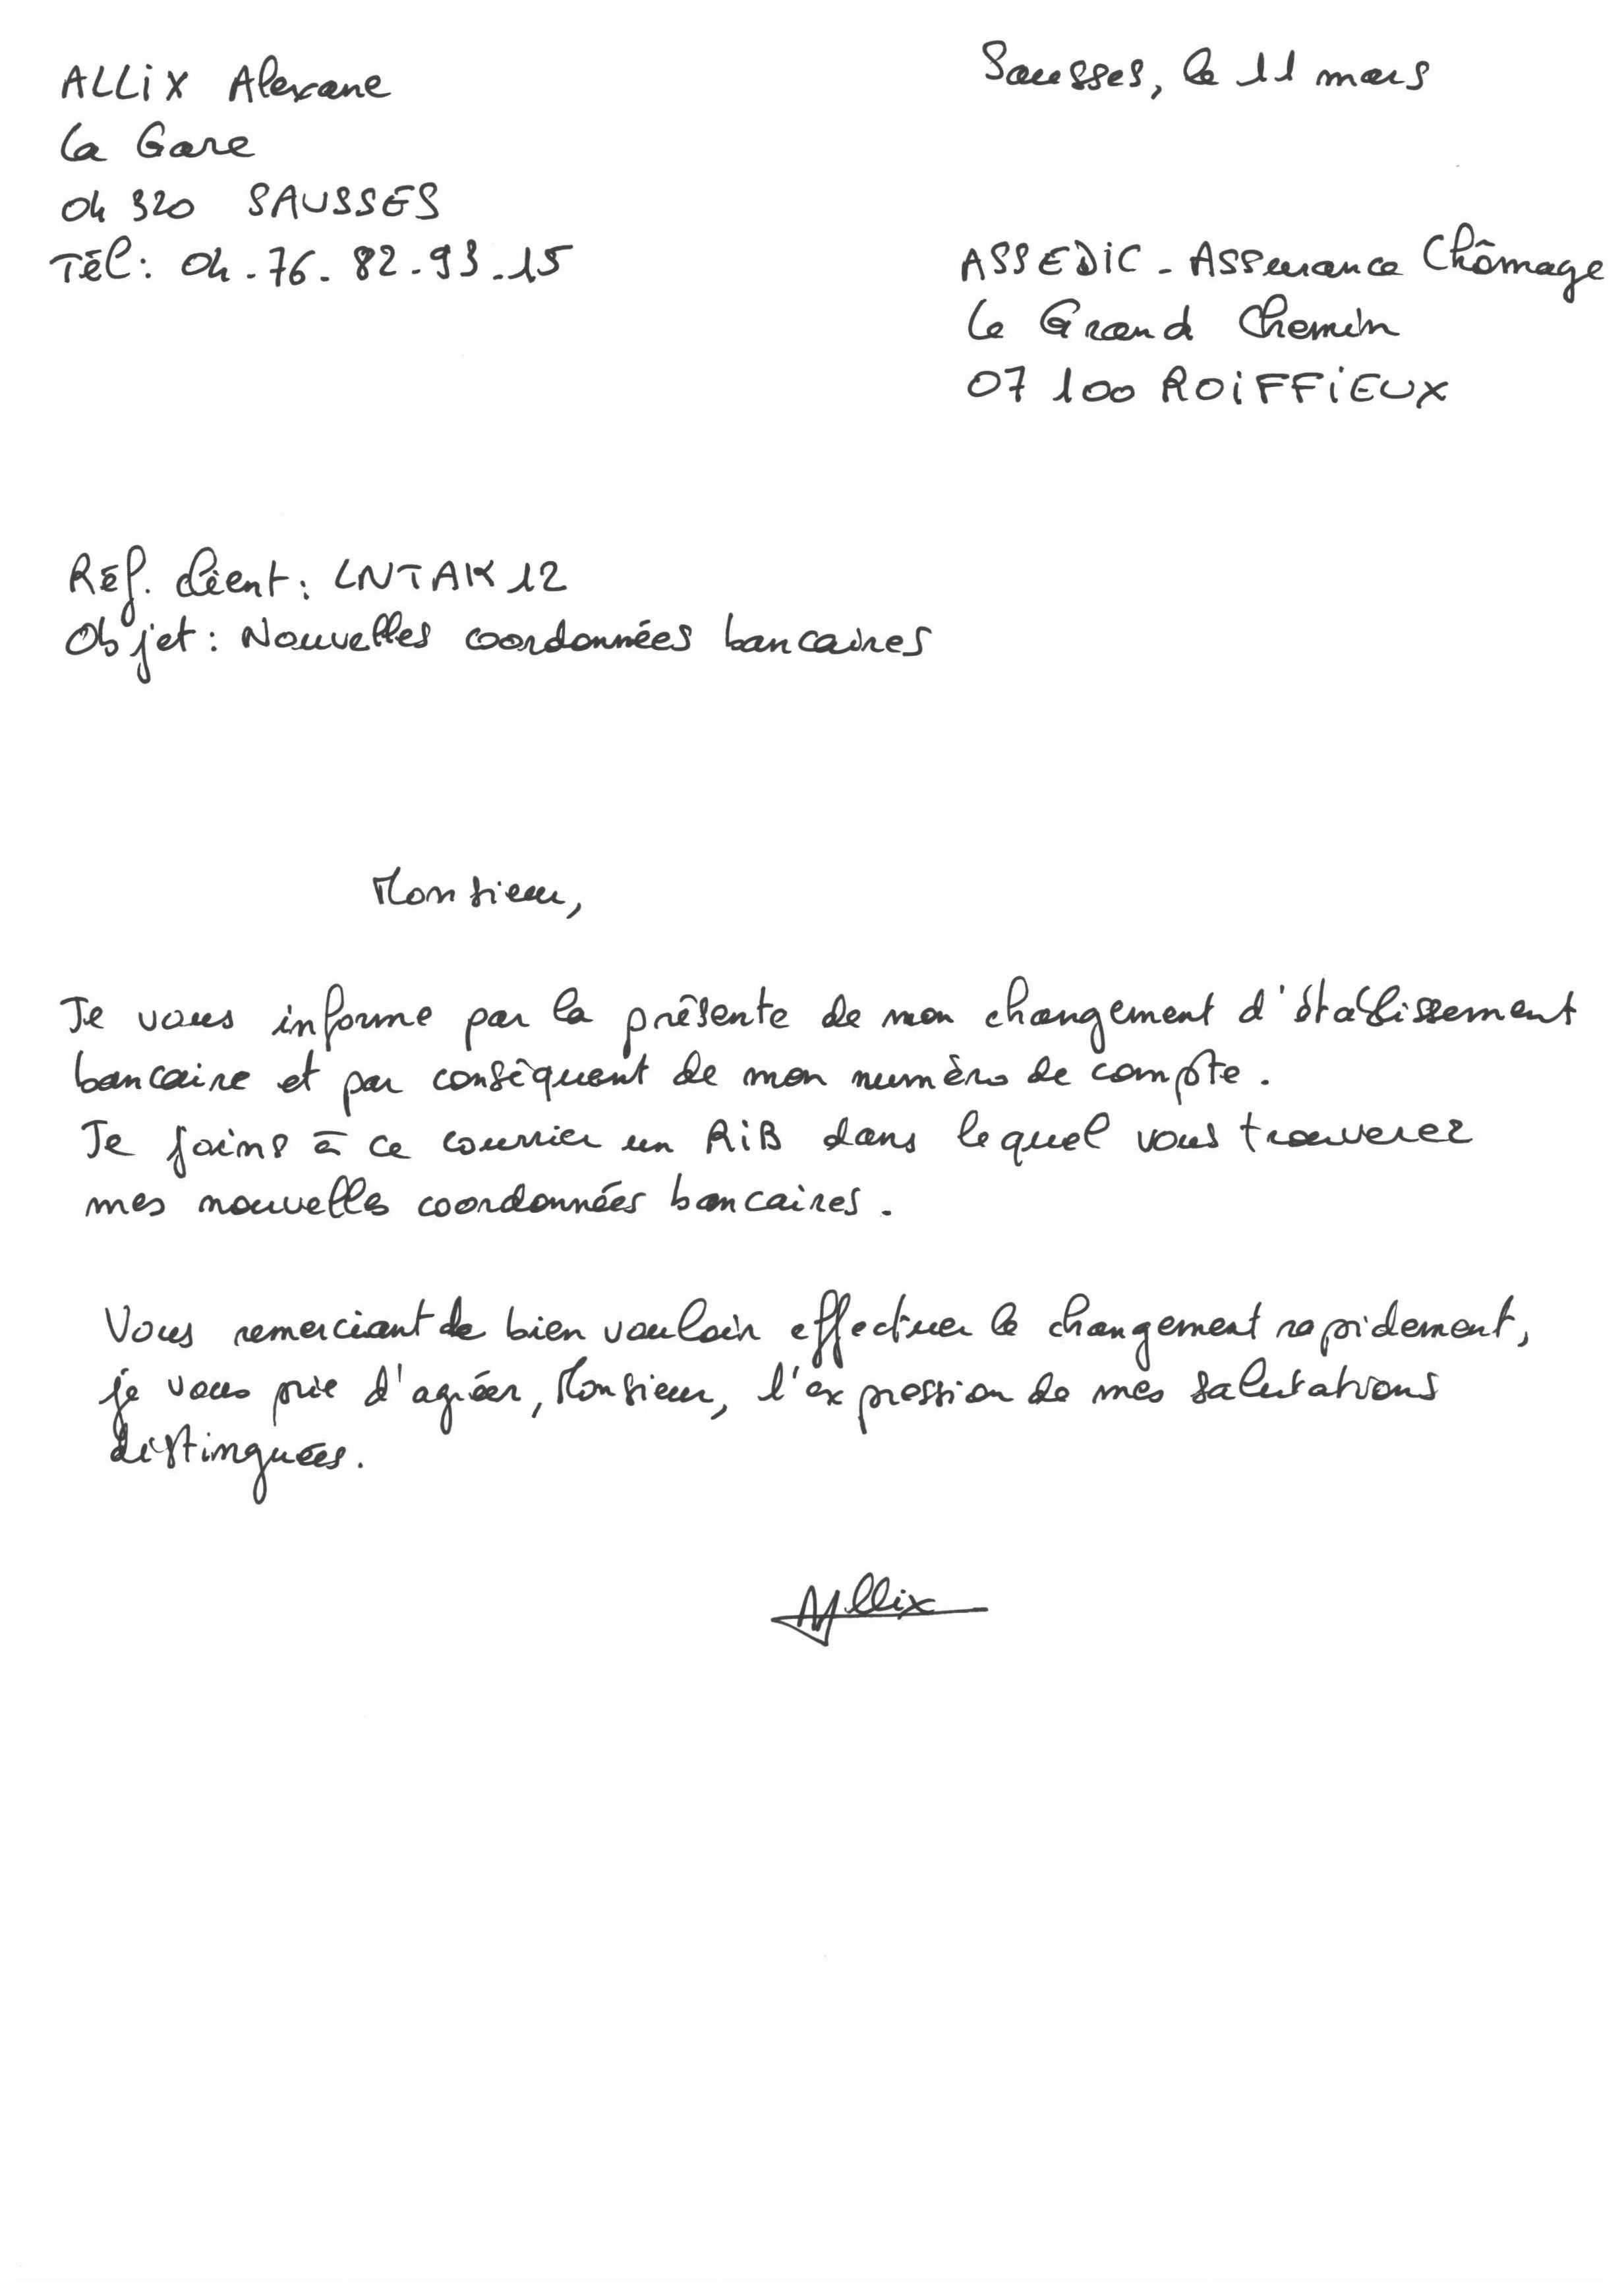 ALLiX Alexane
La Gare
04 320 SAUSSES
Tél: 04.76.82.93.15
Sausses, le 11 mars
ASSEDiC - Assurance Chômage
Le Grand Chemin
07 100 ROiFFiEUX
Réf. client: LNTAK12
Objet: Nouvelles coordonnées bancaires
Monsieur,
Je vous informe par la présente de mon changement d'établissement
bancaire et par conséquent de mon numéro de compte.
Je joins à ce courrier un RiB dans lequel vous trouverez
mes nouvelles coordonnées bancaires.
Vous remerciant de bien vouloir effectuer le changement rapidement,
je vous prie d'agréer, Monsieur, l'expression de mes salutations
distinguées.
Allix